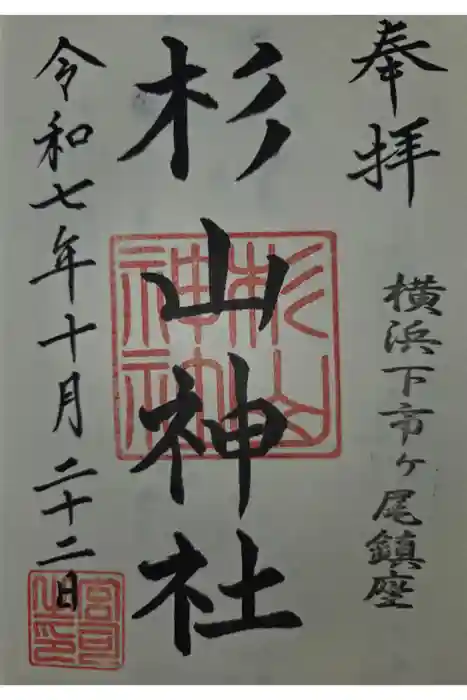 奉拝
横浜下市ケ尾鎮座
杉山神社
杉山神社
令和七年十月二十二日
宮司之印